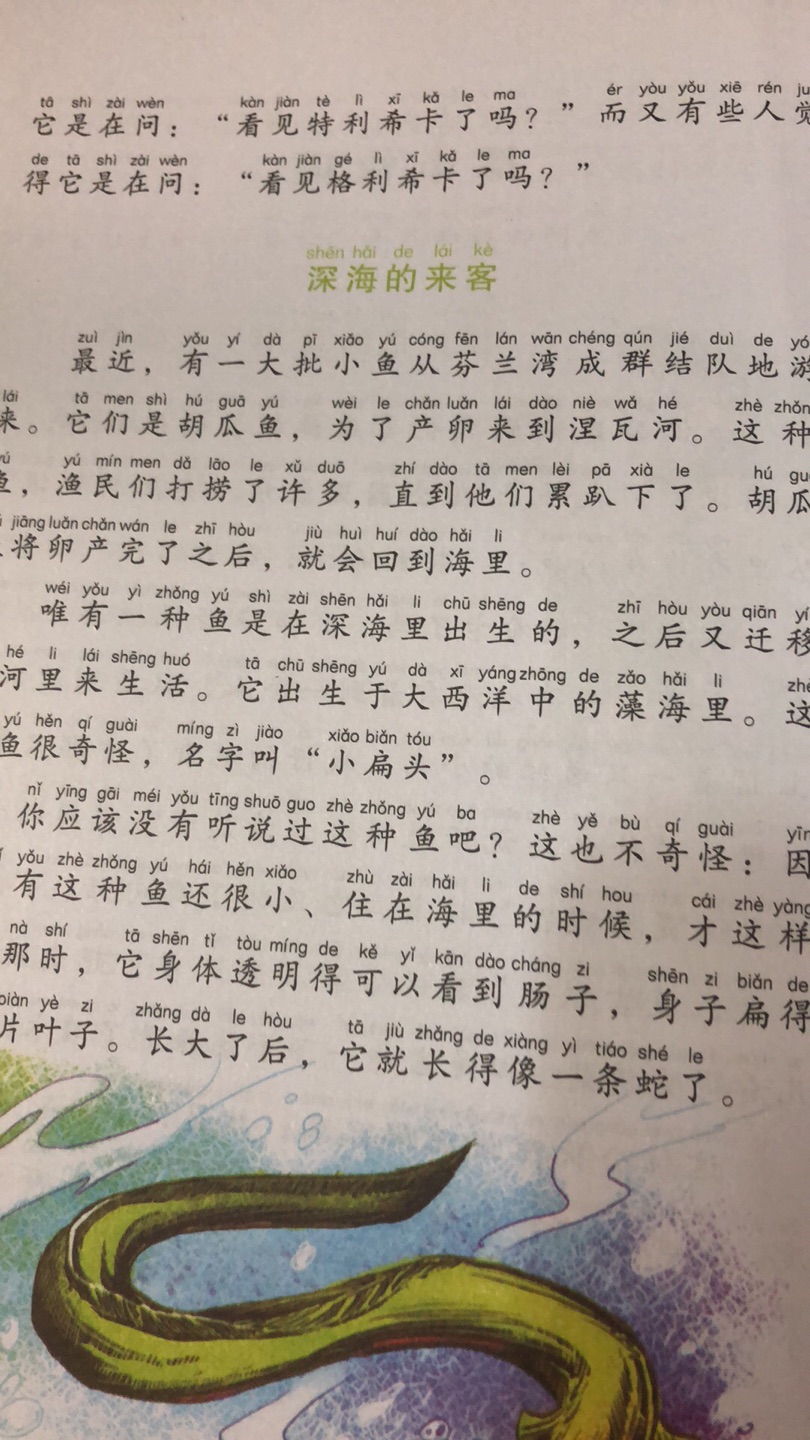 tā shì zài wèn kàn jiàn tè lì xī kǎ le ma ér yòu yǒu xiē rén
它是在问：“看见特利希卡了吗？”而又有些人觉
de tā shì zài wèn kàn jiàn gé lì xī kǎ le ma
得它是在问：“看见格利希卡了吗？”
shēn hǎi de lái kè
深海的来客
zuì jìn yǒu yí dà pī xiǎo yú cóng fēn lán wān chéng qún jié duì de
最近，有一大批小鱼从芬兰湾成群结队地游
lái tā men shì hú guā yú wèi le chǎn luǎn lái dào niè wǎ hé zhè zhǒng
来。它们是胡瓜鱼，为了产卵来到涅瓦河。这种
yú mín men dǎ lāo le xǔ duō zhí dào tā men lèi pā xià le hú guā
鱼，渔民们打捞了许多，直到他们累趴下了。胡瓜
jiāng luǎn chǎn wán le zhī hòu jiù huì huí dào hǎi li
将卵产完了之后，就会回到海里。
wéi yǒu yì zhǒng yú shì zài shēn hǎi li chū shēng de zhī hòu yòu qiān yí
唯有一种鱼是在深海里出生的，之后又迁移
hé li lái shēng huó tā chū shēng yú dà xī yáng zhōng de zǎo hǎi li zhè
河里来生活。它出生于大西洋中的藻海里。这
yú hěn qí guài míng zì jiào xiǎo biǎn tóu
鱼很奇怪，名字叫“小扁头”。
nǐ yīng gāi méi yǒu tīng shuō guo zhè zhǒng yú ba zhè yě bù qí guài yīn
你应该没有听说过这种鱼吧？这也不奇怪：因
yǒu zhè zhǒng yú hái hěn xiǎo zhù zài hǎi li de shí hou cái zhè yàng
有这种鱼还很小、住在海里的时候，才这样
nà shí tā shēn tǐ tòu míng de kě yǐ kān dào cháng zi shēn zi biǎn de
那时，它身体透明得可以看到肠子，身子扁得
piàn yè zi zhǎng dà le hòu tā jiù zhǎng de xiàng yì tiáo shé le
片叶子。长大了后，它就长得像一条蛇了。